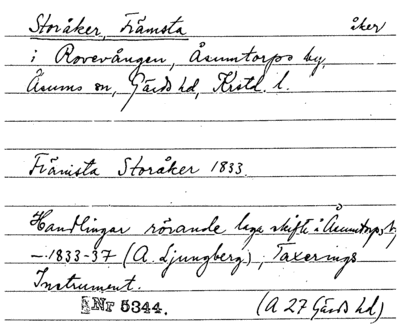 Storåker, Främsta åker
i Rovevången, Åsumtorps by,
Åsums sn, Gärds hd, Krstd. l.
Främsta Storåker 1833.
Handlingar rörande laga skifte i Åsumtorps by
– 1833-37 (A. Ljungberg), Taxerings
Instrument.
ÅNr 5344. (A 27 Gärds hd)